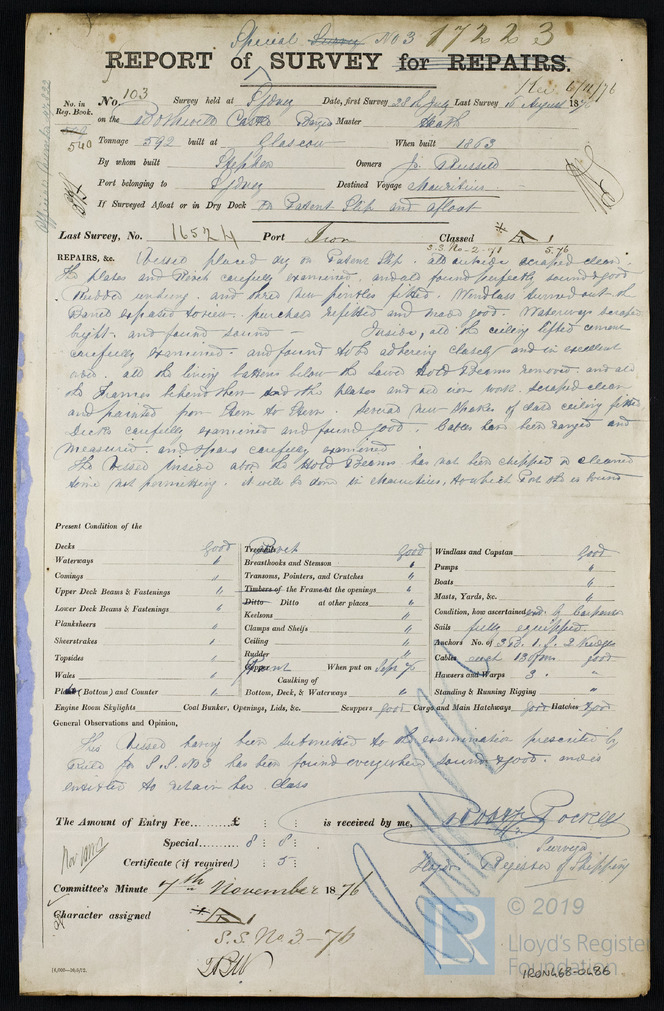 Special Survey No 3 17223
REPORT of SURVEY for REPAIRS.
Rec 6/11/76
No. in Reg. Book. No. 103 Survey held at Sydney Date, first Survey 28th July Last Survey 16 August 187
540 on the Bothwell Castle Barque Master Heath
Tonnage 592 built at Glascow When built 1863
By whom built Stephen Owners J. Russell
Port belonging to Sydney Destined Voyage Mauritius
If Surveyed Afloat or in Dry Dock On Patent Slip and afloat
Last Survey, No. 16524 Port Iron Classed A 1
S.S. No-2-71 5.76
REPAIRS, &c. Vessel placed dry on Patent Slip. all outside scraped clean
the plates and Rivets carefully examined. and all found perfectly sound & good
Rudder unhung. and three new pintles fitted. Windlass turned out of
place and separated to view. purchase refitted and made good. Waterways scraped
bright. and found sound — Inside, all the ceiling lifted cement
carefully examined. and found to be adhering closely and in excellent
order. all the lining battens below the lower Hold Beams removed. and all
the Frames behind them and the plates and all iron work. scraped clean
and painted from Stem to Stern. Several new Strakes of hold ceiling fitted
Decks carefully examined and found good. Cables have been ranged and
measured. and spars carefully examined
The Vessel Inside above the Hold Beams has not been chipped or cleaned
time not permitting. it will be done in Mauritius, to which Port she is bound
Present Condition of the
Decks good
Waterways "
Comings "
Upper Deck Beams & Fastenings "
Lower Deck Beams & Fastenings "
Planksheers "
Sheerstrakes "
Topsides "
Wales "
Plates (Bottom) and Counter "
Engine Room Skylights
Treenails Rivets good
Breasthooks and Stemson "
Transoms, Pointers, and Crutches "
Timbers of the Frame at the openings "
Ditto Ditto at other places "
Keelsons "
Clamps and Shelfs "
Ceiling "
Rudder "
Copper Cement When put on Sept 76
Caulking of
Bottom, Deck, & Waterways "
Coal Bunker, Openings, Lids, &c. Scuppers good Cargo and Main Hatchways good Hatches good
Windlass and Capstan good
Pumps "
Boats "
Masts, Yards, &c. "
Condition, how ascertained
Sails fully equipped
Anchors No. of 3 B. 1 S. 2 Kedges
Cables each 130 fms good
Hawsers and Warps 3. "
Standing & Running Rigging "
General Observations and Opinion,
This Vessel having been submitted to the examination prescribed by
Rules for S.S. No 3 has been found everywhere sound & good. and is
entitled to retain her Class
The Amount of Entry Fee.........£ : : is received by me,
Special....... 8 : 8 :
Surveyor
Certificate (if required) : 5 :
Lloyds Register of Shipping
Committee's Minute 7th November 1876
Character assigned A 1
S.S. No 3 - 76
18,000—26/6/72.
© 2019
LR
Lloyd's Register
Foundation
IRON468-0486